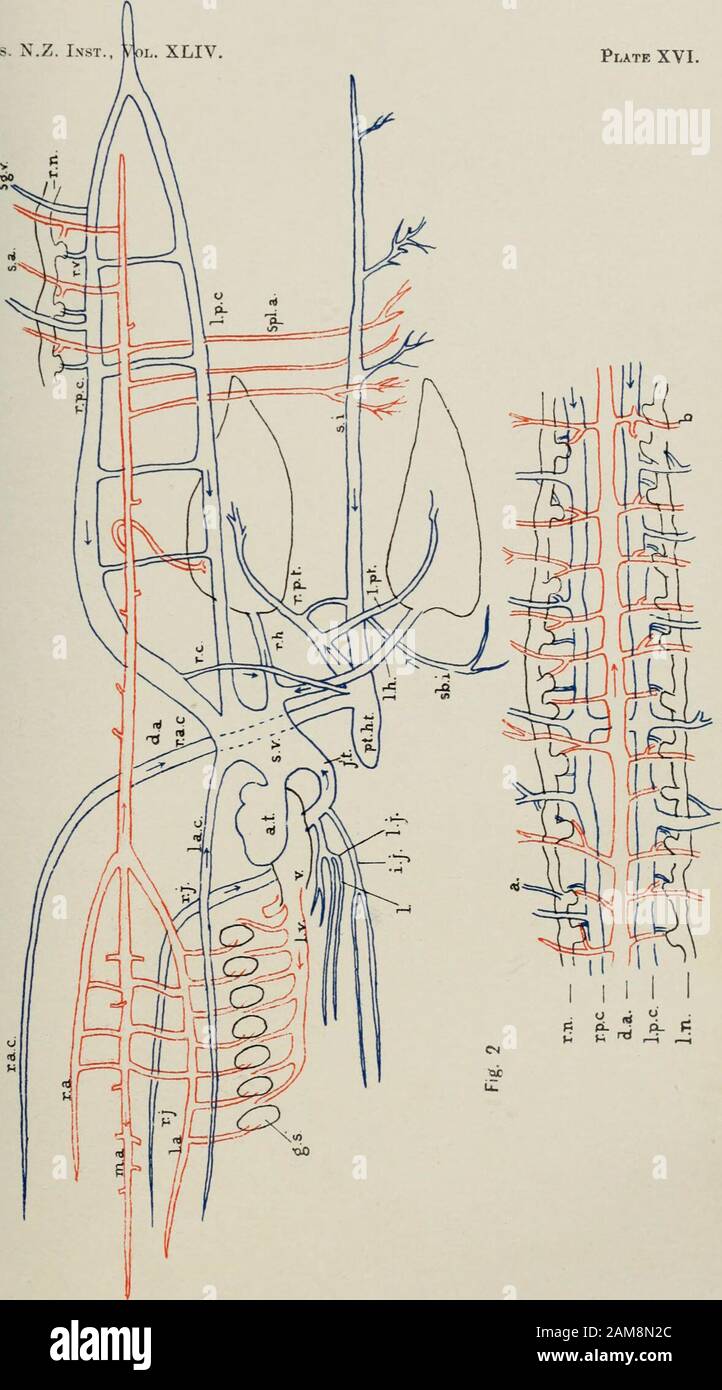 s. N.Z. Inst., Vol. XLIV.
Plate XVI.
sg.v.
r.n.
s.a.
r.v
r.p.c.
l.p.c
spl.a.
s.i
r.p.t.
l.pt.
r.c.
r.h
l.h.
sb.i
d.a
r.a.c
s.v.
pt.h.t.
j.t.
l.a.c.
a.t.
r.j.
v.
l.j.
i.j.
l.
l.v.
r.a.c.
r.a
r.j
l.a
m.a
g.s.
Fig. 2
a.
b
r.n.
r.p.c
d.a.
l.p.c.
l.n.
a
alamy
alamy
Image ID: 2AM8N2C
www.alamy.com